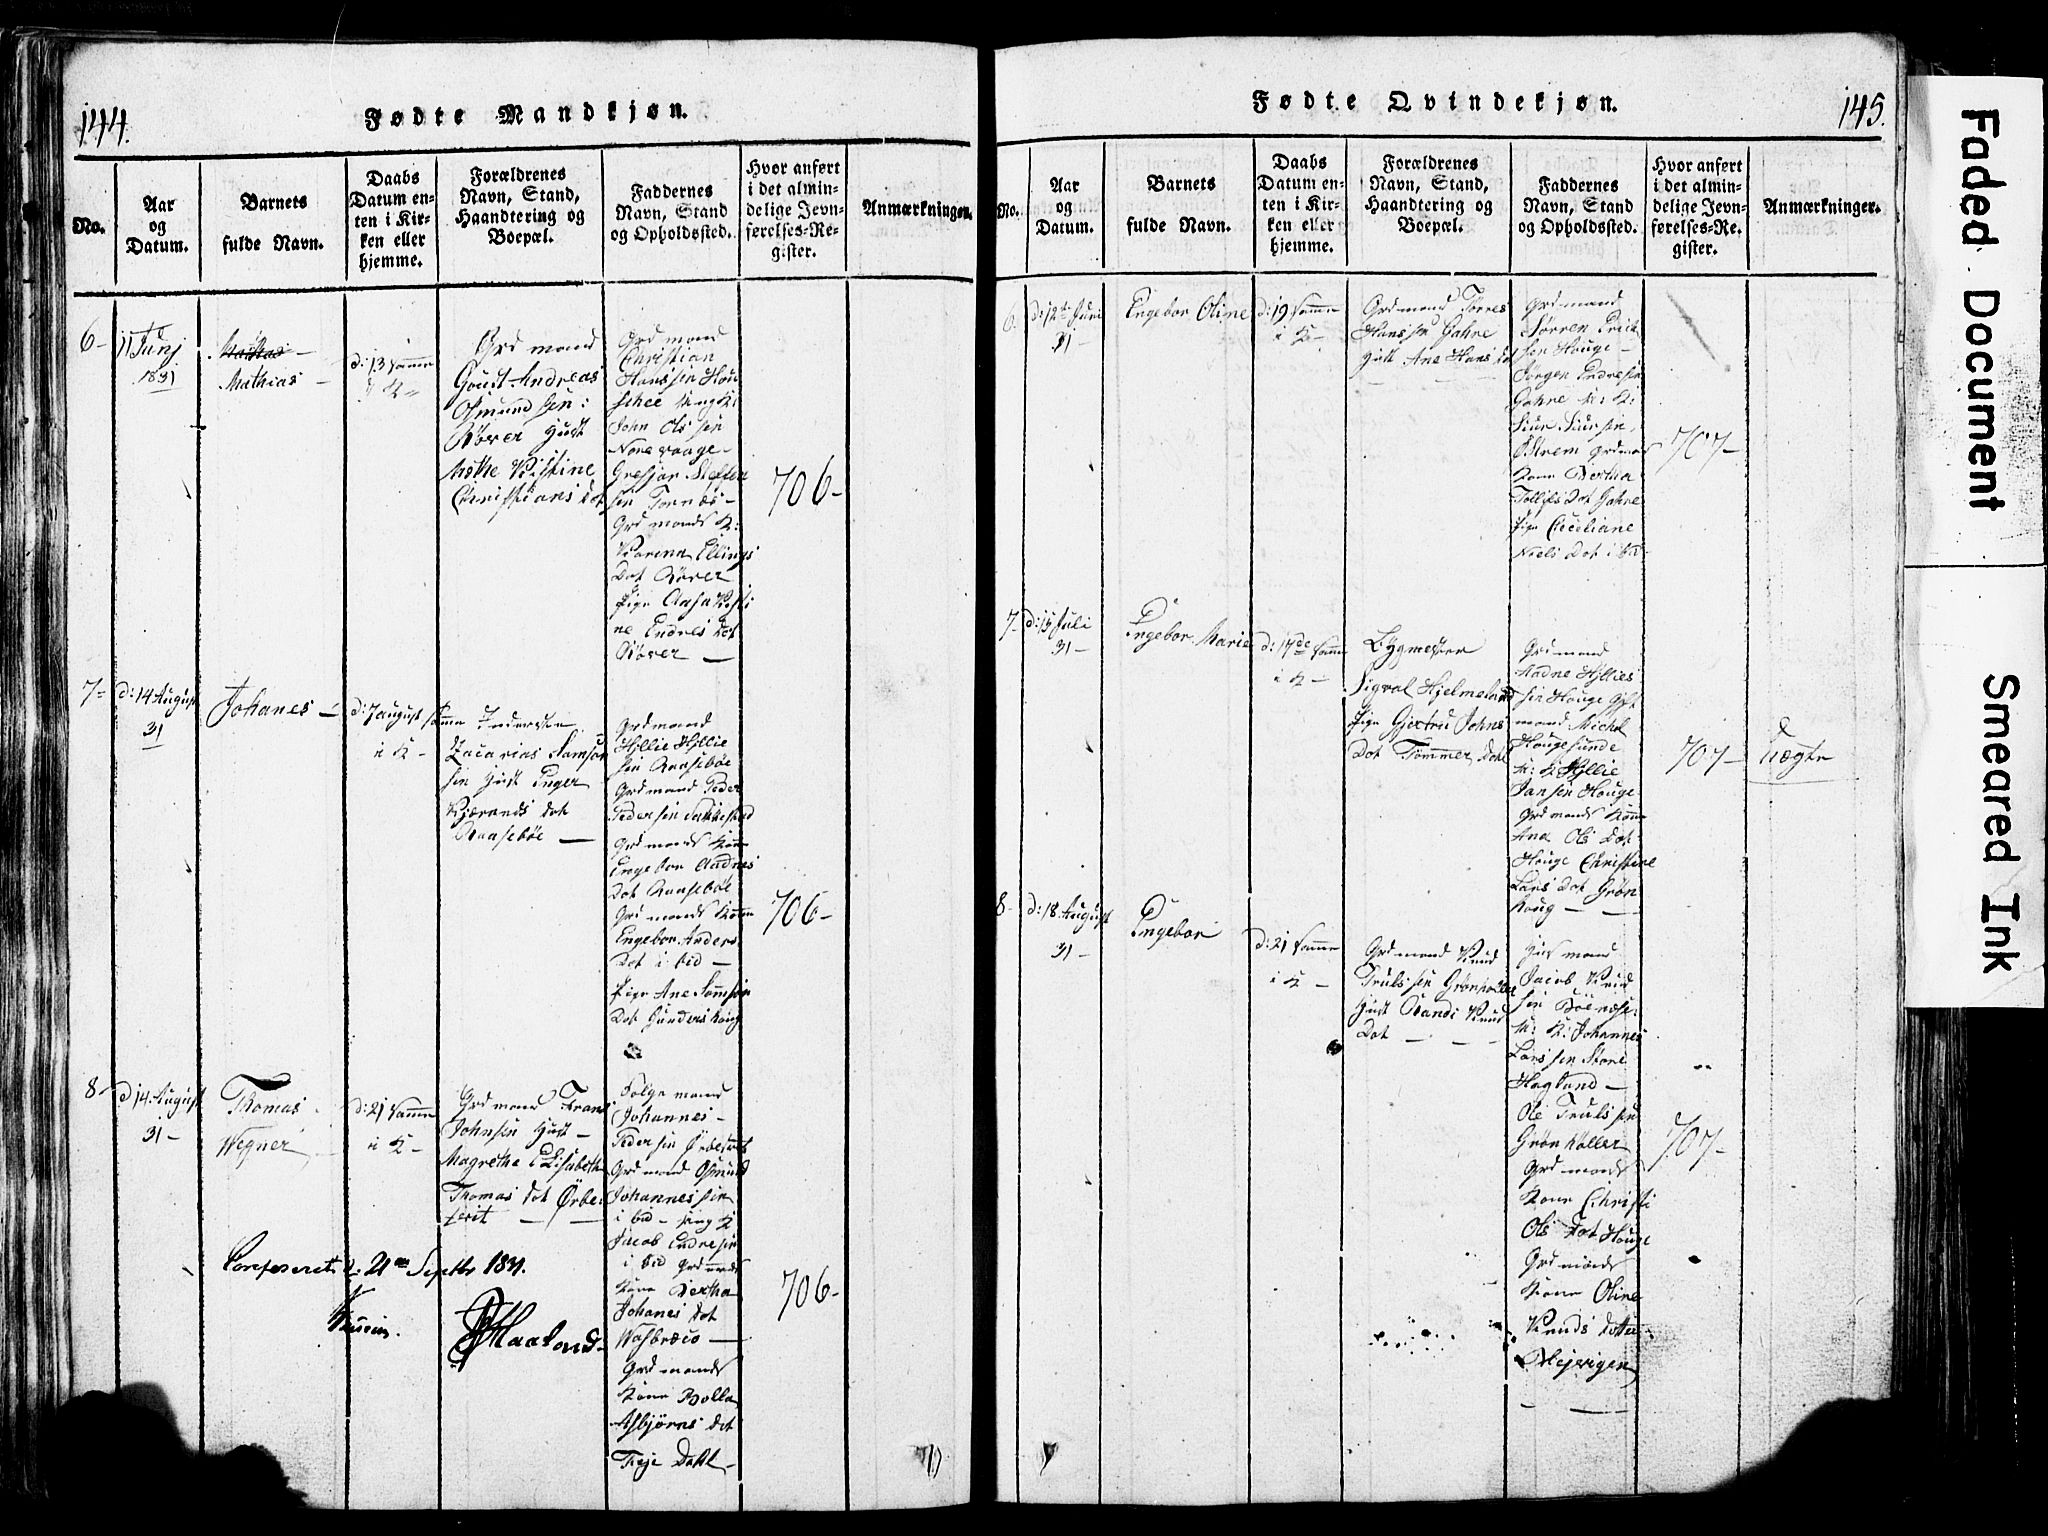 144.
Fødte Mandkjøn.
No.
Aar
og
Datum.
Barnets
fulde Navn.
Daabs
Datum en-
ten i Kir-
ken eller
hjemme.
Forældrenes
Navn, Stand,
Haandtering og
Boepæl.
Faddernes
Navn, Stand
og Opholdssted.
Hvor anført
i det almin-
delige Jevn-
førelses-Re-
gister.
Anmærkninger.
6-
11 Junj
1831
Mathias -
d: 13 samme
i K-
Grdmand
Goust Andreas
Osmundsen:
Røver Hust
Mæthe Kistine
Christians dot
Grdmand
Christian
Hanssen Hou
schee ungk:
John Olssen
Norevaage -
Gresjar Steffen
sen Tornæs -
Grdmands K:
Karena Ellings
Dot Røver
Pige Aasa Kisti
ne Endres Dot
Røver -
706-
7-
d: 14 August
31
Johanes -
d: 7 august samme
i K -
Inderste
Zacarias Samson
sen Hust Enger
Kjærands dot
Raasebøe -
Grdmand
Hjllie Hjllie
sen Raasebøe
Grdmand Peder
Pedersen Sakkestad
Grdmands Kone
Engebor Aadnes
Dot Raasebøe
Grdmands Kone
Engebor Anders
Dot i bid -
Pige Ane Samson
Dot Gunderskoug
706-
8-
d 14. August
31-
Thomas
Wegner
d: 21 samme
i K-
Grdmand Frans
Johnsen Hust -
Magrethe Elisabeth
Thomas dot Ørbe
terit -
Folgemand
Johannes -
Pedersen
Grdmand Osmund
Johannessen
i bid - ung K
Jacob Endresen
i bid Grdmands
Kone Bertha
Johanes Dot
Grdmands
Kone Bolla
Asbjørns dot
Treje Dahl -
706-
Confereret d: 21de Septbr 1831.
Maaland
145.
Fødte Qvindekjøn.
No.
Aar
og
Datum.
Barnets
fulde Navn.
Daabs
Datum en-
ten i Kir-
ken eller
hjemme.
Forældrenes
Navn, Stand,
Haandtering og
Boepæl.
Faddernes
Navn, Stand
og Opholdssted.
Hvor anført
i det almin-
delige Jevn-
førelses-Re-
gister.
Anmærkninger.
6.
d: 12te Juni
31-
Engebor Oline
d: 19 samme
i K-
Grdmand Torres
Hanssen Gahre
Hust Ane Hans Dot
Grdmand
Sørren Erick
sen Houge -
Jørgen Endresen
Gahre u: K:
Siur Siursen
Østrem Grdmands
Kone Bertha
Tollefs Dot Gahre
Pige Ciceliane
Niels Dot i bid
707-
7-
d: 15 Juli
31-
Engebor Marie
d: 17de samme
i K -
Lygmester
Sigval Hjelmeland
Pige Gjertru Johns
Dot Tømmer dahl
Grdmand
Aadne Hjllies
sen Houge Gift
mand Michel
Hougesunde
u: K Hjllie
Jansen Houge
Grdmands Kone
Ana Ols Dot
Houge Christine
Lars Dot Grøn
houg -
707-
Uægte
8-
d: 18 August
31-
Engebor
d: 21 samme
i K -
Grdmand Knud
Trulssen Grønholler
Hust Randi Knud
Dot -
Husmand
Jacob Knud
sen Bøenæse:
u: K: Johannes
Larssen Store
Hagland -
Ole Trulssen
Grønholler
Grdmands
Kone Christi
Ols Dot Houge
Grdmands
Kone Oline
Knuds dotter
Mejvigen
707-
Faded Document
Smeared Ink